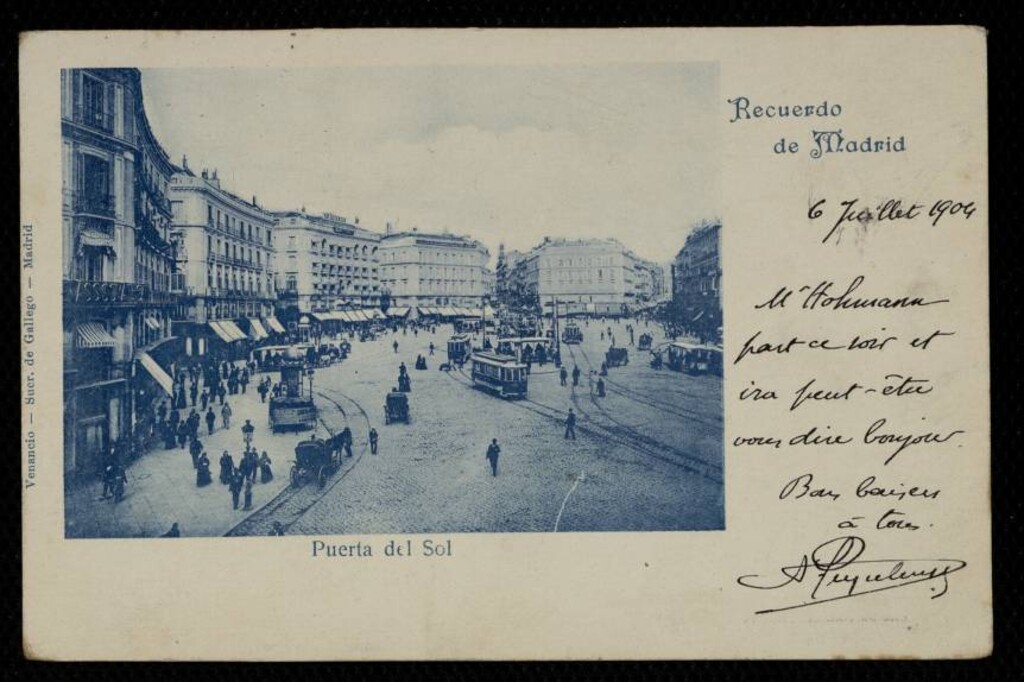 Recuerdo
de Madrid
6 Juillet 1904
Mr Hohmann
part ce soir et
ira peut-être
vous dire bonjour.
Bons baisers
à tous.
Puerta del Sol
Venancio — Sucr. de Gallego — Madrid